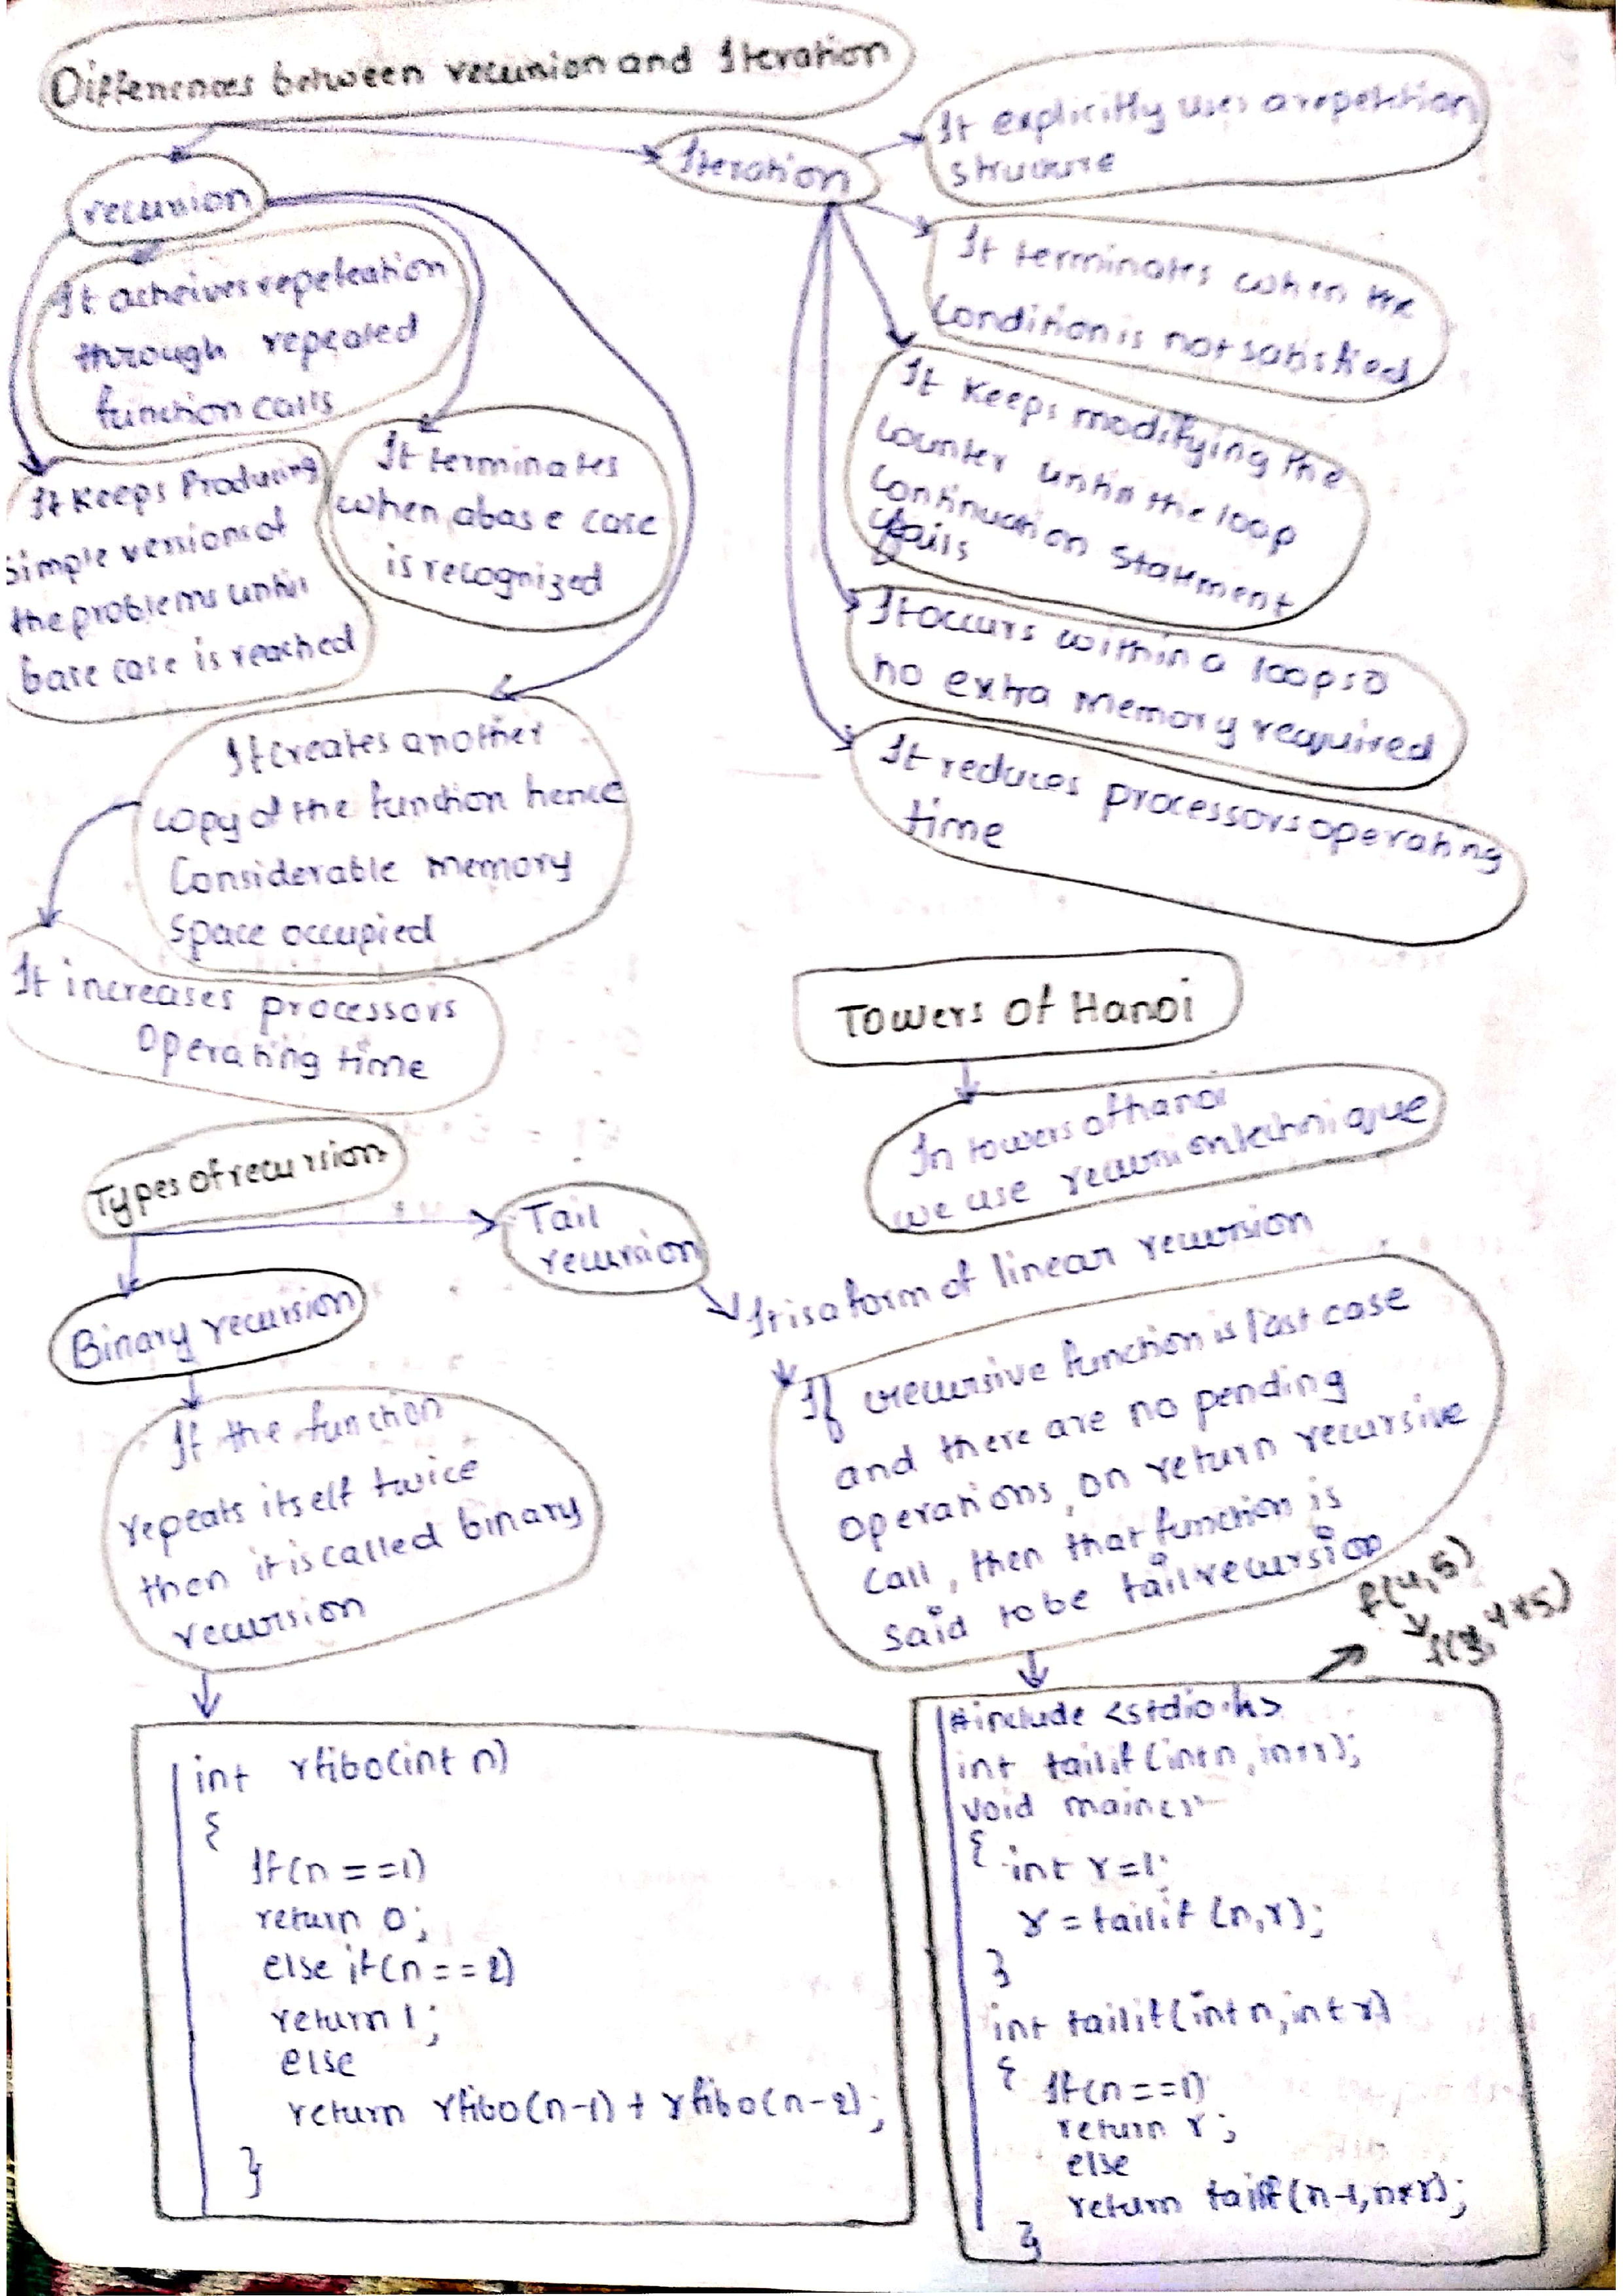 Differences between recursion and Iteration
recursion
It acheives repeteation
through repeated
function calls
It Keeps Producing
simple versions of
the problems untill
base case is reached
It terminates
when abase case
is recognized
It creates another
copy of the function hence
Considerable memory
space occupied
It increases processors
operating time
Iteration
It explicitly uses a repetition
structure
It terminates when the
condition is not satisfied
It Keeps modifying the
counter untill the loop
continuation statement
fails
It occurs within a loop so
no extra memory required
It reduces processors operating
time
Towers of Hanoi
In towers of hanoi
we use recursion technique
Types of recursion
Binary recursion
If the function
repeats itself twice
then it is called binary
recursion
int rfibo(int n)
{
If(n ==1)
return 0;
else if(n == 2)
return 1;
else
return rfibo(n-1) + rfibo(n-2);
}
Tail
recursion
It is a form of linear recursion
If recursive function is last case
and there are no pending
operations, on return recursive
call, then that function is
said to be tail recursion
f(4,5)
#include <stdio.h>
int tailif(int n, int r);
void main()
{
int r=1;
r = tailif (n,r);
}
int tailif(int n, int r)
{
If(n==1)
return r;
else
return tailif(n-1,n*r);
}